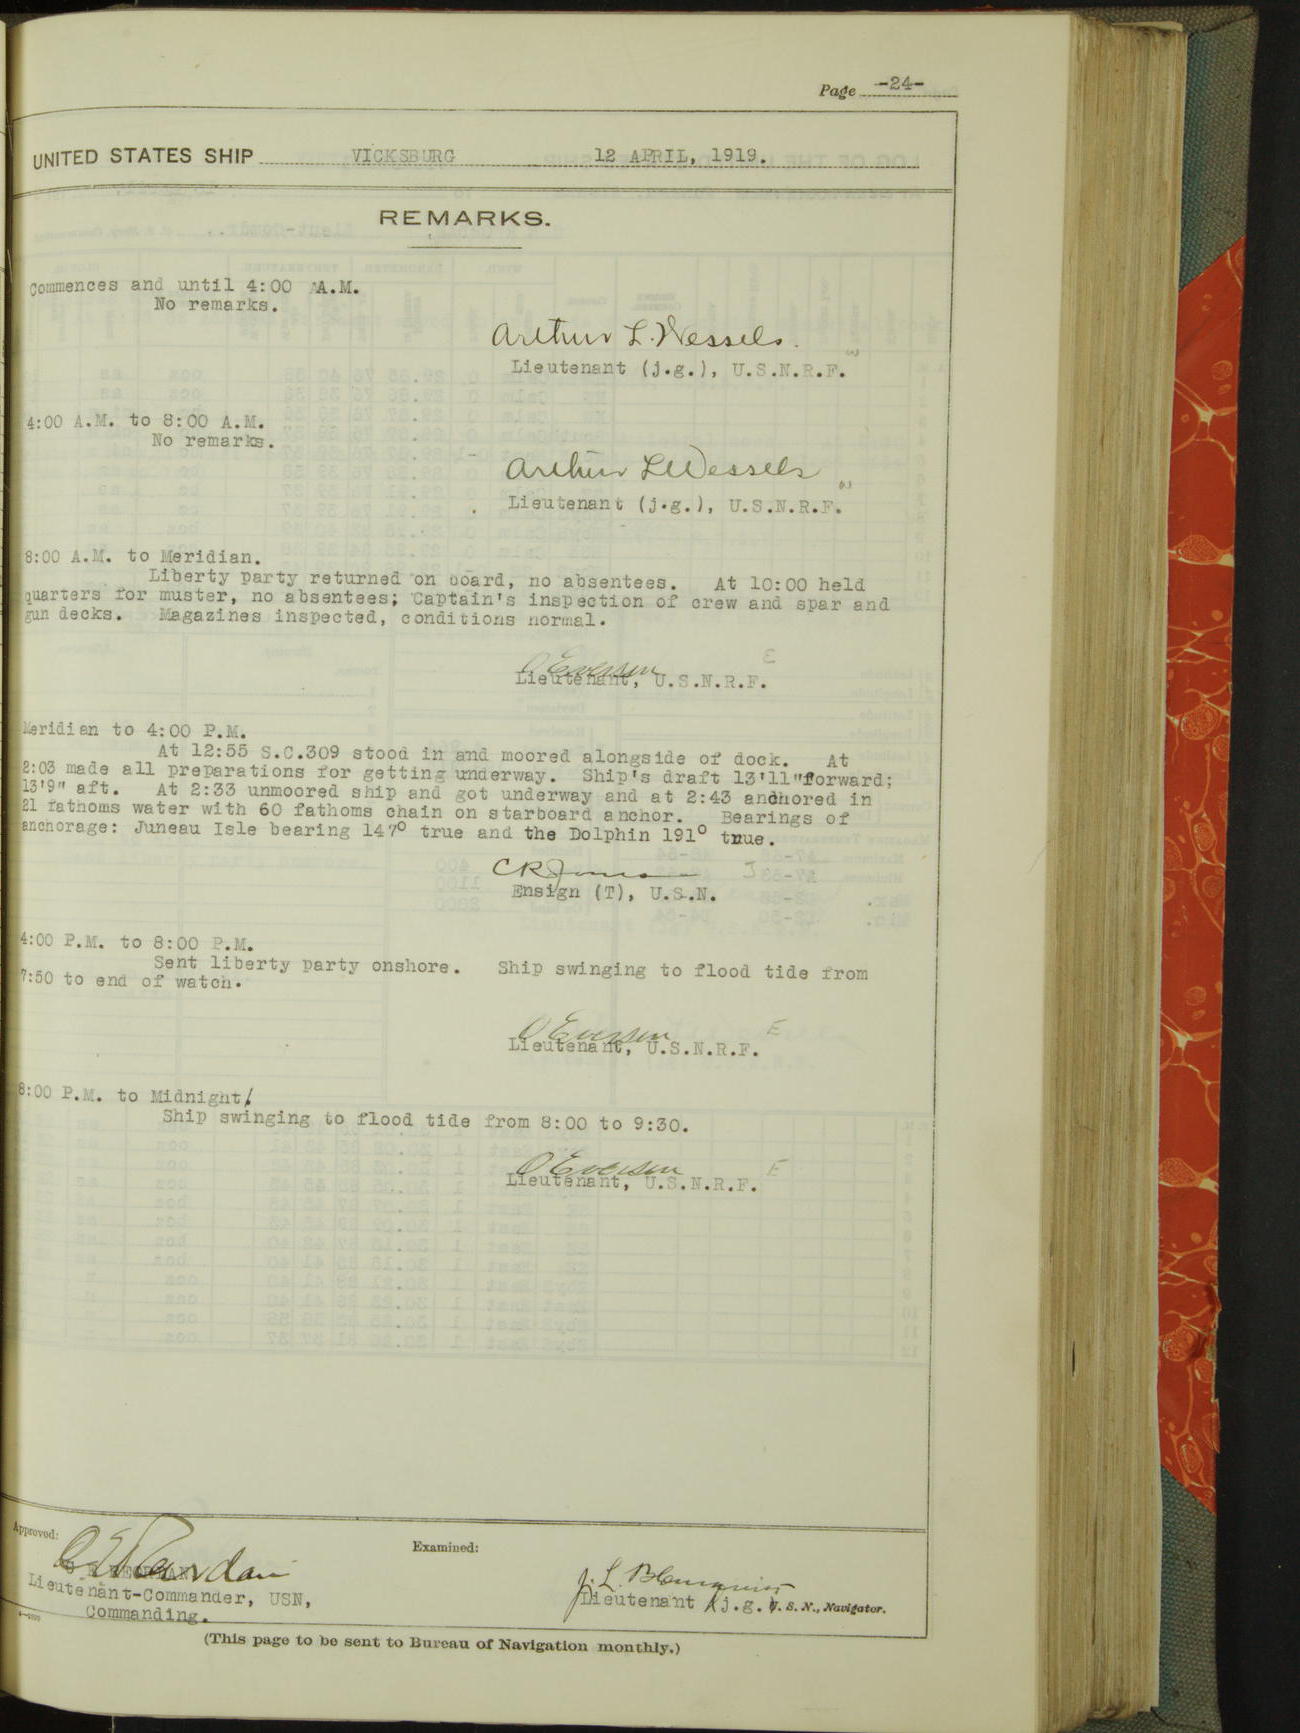 Page -24-
UNITED STATES SHIP VICKSBURG 12 APRIL, 1919.
REMARKS.
Commences and until 4:00 A.M.
No remarks.
Arthur L. Wessels.
Lieutenant (j.g.), U.S.N.R.F.
4:00 A.M. to 8:00 A.M.
No remarks.
Arthur L Wessels
Lieutenant (j.g.), U.S.N.R.F.
8:00 A.M. to Meridian.
Liberty party returned on board, no absentees. At 10:00 held
quarters for muster, no absentees; Captain's inspection of crew and spar and
gun decks. Magazines inspected, conditions normal.
O Eversen
Lieutenant, U.S.N.R.F.
Meridian to 4:00 P.M.
At 12:55 S.C.309 stood in and moored alongside of dock. At
2:03 made all preparations for getting underway. Ship's draft 13'11"forward;
13'9" aft. At 2:33 unmoored ship and got underway and at 2:43 anchored in
21 fathoms water with 60 fathoms chain on starboard anchor. Bearings of
anchorage: Juneau Isle bearing 147° true and the Dolphin 191° true.
C R Jones
Ensign (T), U.S.N.
4:00 P.M. to 8:00 P.M.
Sent liberty party onshore. Ship swinging to flood tide from
7:50 to end of watch.
O Eversen E
Lieutenant, U.S.N.R.F.
8:00 P.M. to Midnight.
Ship swinging to flood tide from 8:00 to 9:30.
O Eversen E
Lieutenant, U.S.N.R.F.
Approved:
Examined:
Lieutenant-Commander, USN,
Commanding.
J. L.
Lieutenant (j.g.) U. S. N., Navigator.
(This page to be sent to Bureau of Navigation monthly.)